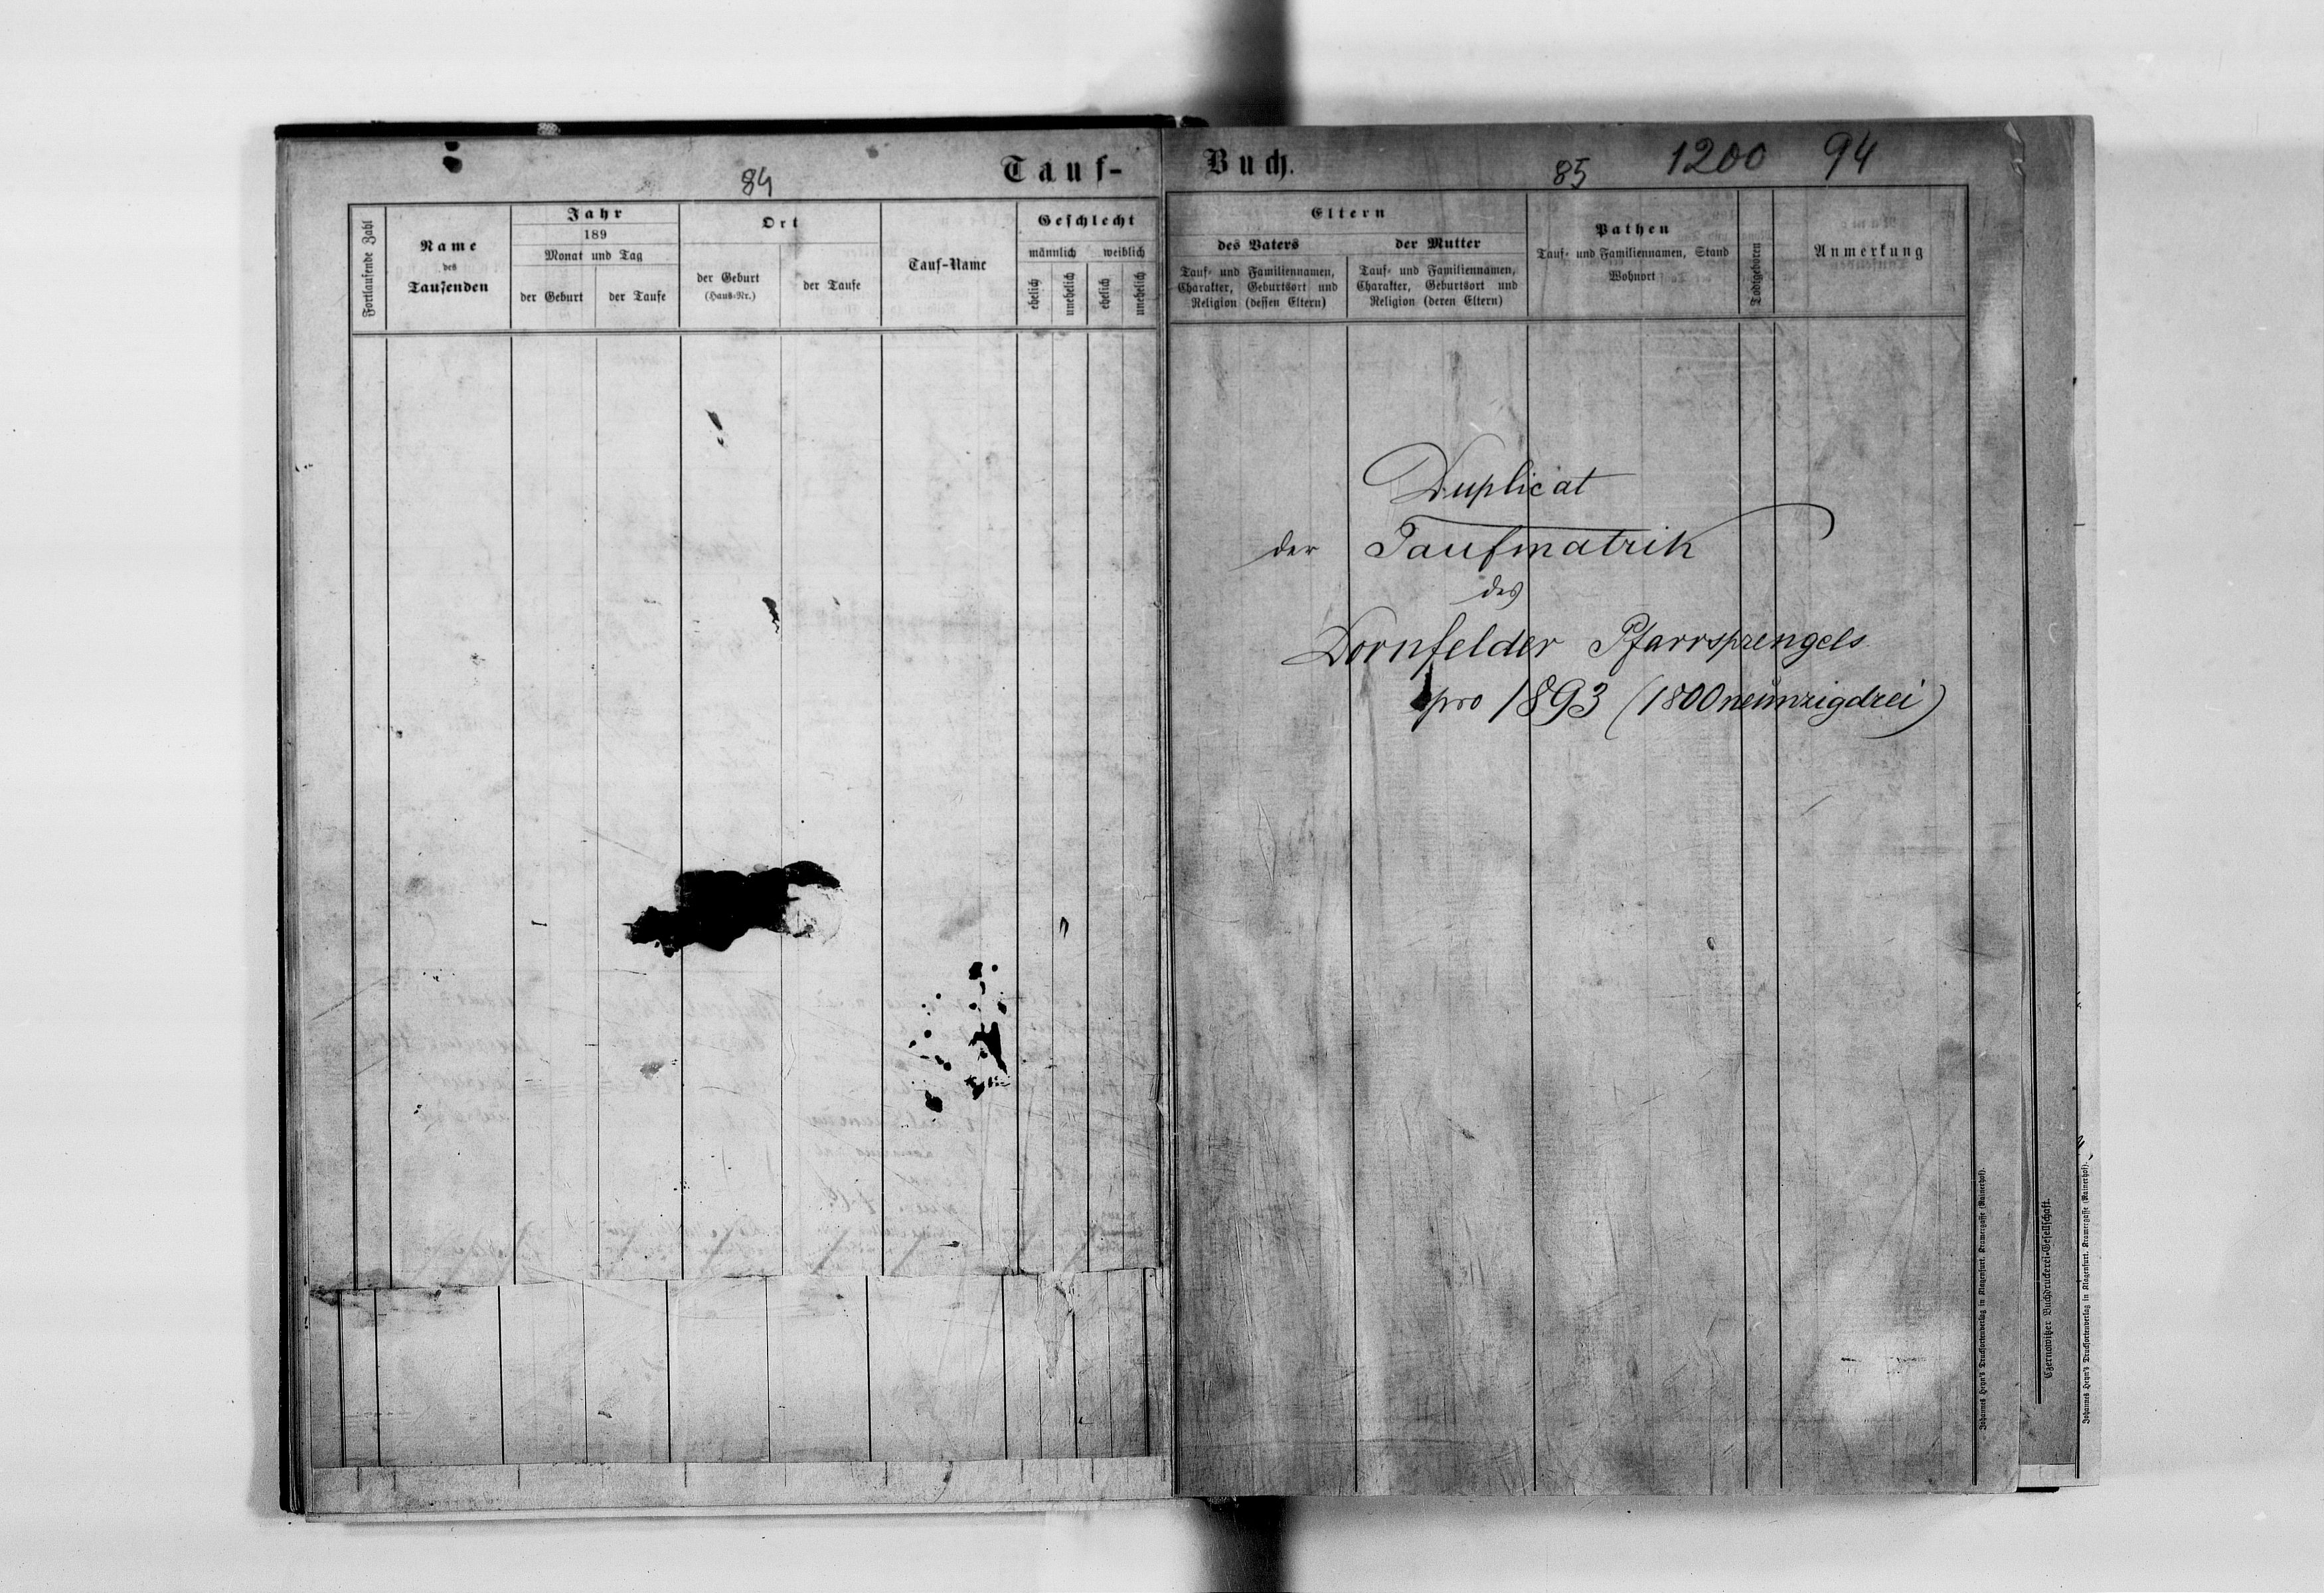 84
Tauf-
Fortlaufende Zahl
Name
des
Taufenden
Jahr
189
Monat und Tag
der Geburt
der Taufe
Ort
der Geburt
(Haus-Nr.)
der Taufe
Tauf-Name
Geschlecht
männlich
weiblich
ehelich
unehelich
ehelich
unehelich
Buch.
85
1200
94
Eltern
des Vaters
Tauf- und Familiennamen,
Charakter, Geburtsort und
Religion (dessen Eltern)
der Mutter
Tauf- und Familiennamen,
Charakter, Geburtsort und
Religion (deren Eltern)
Pathen
Tauf- und Familiennamen, Stand
Wohnort
Todtgeboren
Anmerkung
Duplicat
der Taufmatrik
des
Dornfelder Pfarrsprengels
pro 1893 (1800neunzigdrei)
Johannes Heyn's Drucksortenverlag in Klagenfurt. Kramergasse (Rainerhof).
Czernowitzer Buchdruckerei-Gesellschaft.
Johannes Heyn's Drucksortenverlag in Klagenfurt. Kramergasse (Rainerhof).